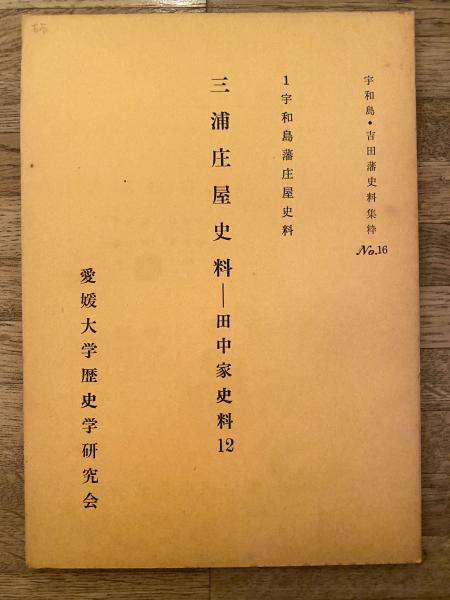 宇和島・吉田藩史料集粋 No.16
1 宇和島藩庄屋史料
三浦庄屋史料―田中家史料12
愛媛大学歴史学研究会